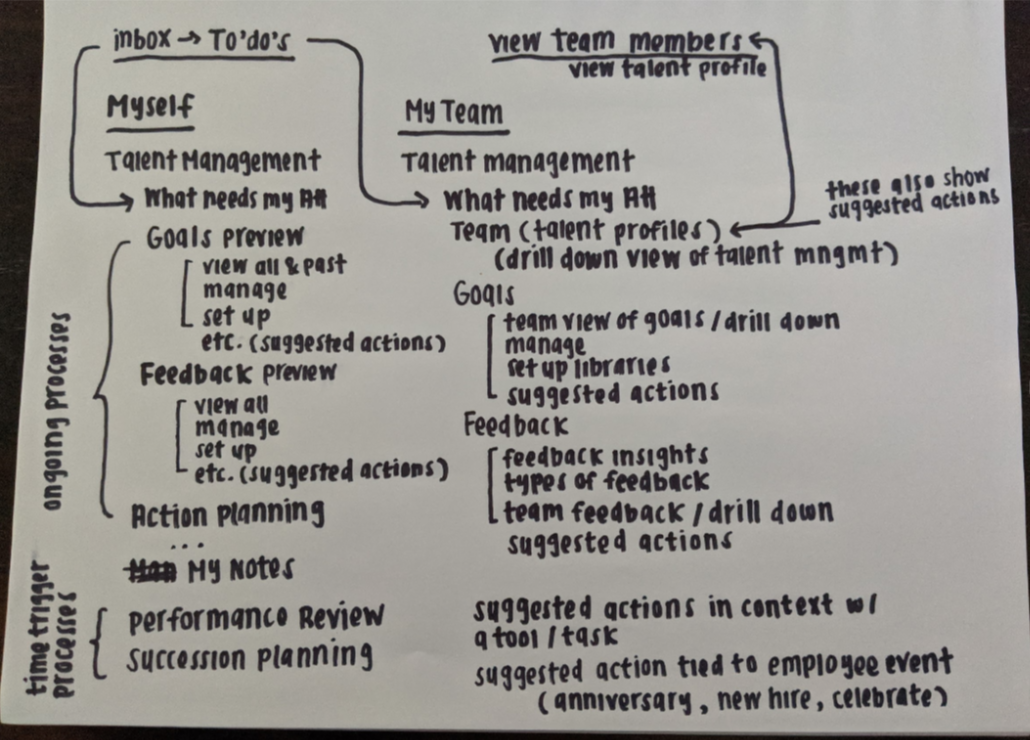 inbox → To'do's
view team members
view talent profile
Myself
My Team
Talent Management
Talent management
What needs my Att
What needs my Att
these also show
suggested actions
Goals preview
view all & past
manage
set up
etc. (suggested actions)
Feedback preview
view all
manage
set up
etc. (suggested actions)
Action planning
...
My Notes
ongoing processes
Performance Review
Succession planning
time trigger
processes
Team (talent profiles)
(drill down view of talent mngmt)
Goals
team view of goals / drill down
manage
set up libraries
suggested actions
Feedback
feedback insights
types of feedback
team feedback / drill down
suggested actions
suggested actions in context w/
a tool / task
suggested action tied to employee event
(anniversary, new hire, celebrate)